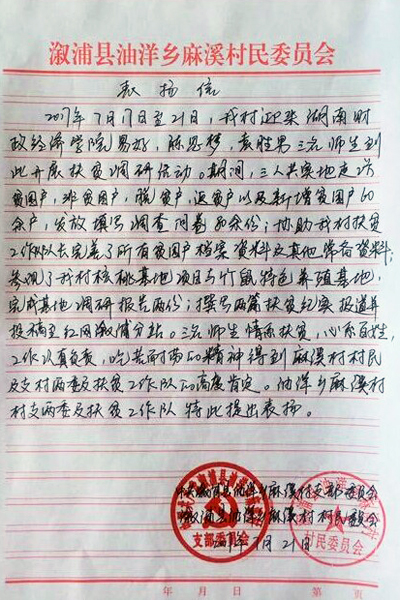 溆浦县油洋乡麻溪村民委员会
表扬信
2017年7月17日至21日，我村迎来湖南财
政经济学院易好，陈思梦，袁胜男三名师生到
此开展扶贫调研活动。期间，三人共实地走访
贫困户，非贫困户，脱贫户，返贫户以及新增贫困户60
余户，发放填写调查问卷80余份；协助我村扶贫
工作队队长完善了所有贫困户档案资料及其他常备资料；
参观了我村核桃基地项目与竹鼠特色养殖基地，
完成基地调研报告两份；撰写两篇扶贫纪实报道并
投稿至红网溆浦分站。三名师生情系扶贫，心系百姓，
工作认真负责，吃苦耐劳的精神得到麻溪村村民
及支村两委及扶贫工作队的高度肯定。油洋乡麻溪村
村支两委及扶贫工作队特此提出表扬。
中共溆浦县油洋乡麻溪村支部委员会
溆浦县油洋乡麻溪村村民委员会
2017年7月21日
支部委员会
村民委员会
年 月 日 第 页